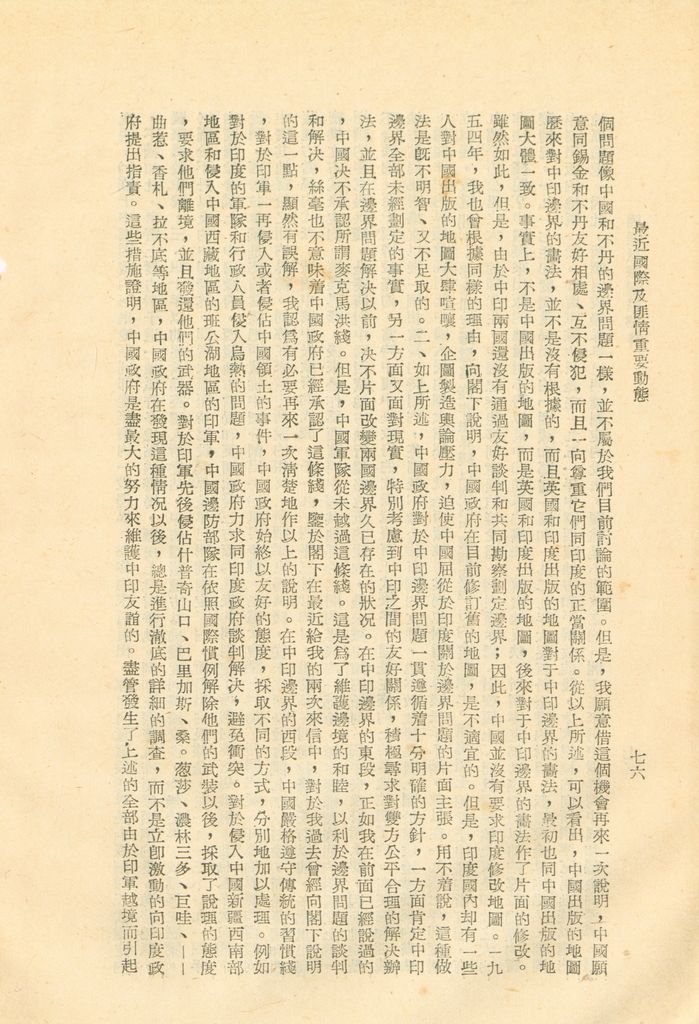 最近國際及匪情重要動態
七六
個問題像中國和不丹的邊界問題一樣，並不屬於我們目前討論的範圍。但是，我願意借這個機會再來一次說明，中國願
意同錫金和不丹友好相處、互不侵犯，而且一向尊重它們同印度的正當關係。從以上所述，可以看出，中國出版的地圖
歷來對中印邊界的畫法，並不是沒有根據的，而且英國和印度出版的地圖對于中印邊界的畫法，最初也同中國出版的地
圖大體一致。事實上，不是中國出版的地圖，而是英國和印度出版的地圖，後來對于中印邊界的畫法作了片面的修改。
雖然如此，但是，由於中印兩國還沒有通過友好談判和共同勘察劃定邊界；因此，中國並沒有要求印度修改地圖。一九
五四年，我也曾根據同樣的理由，向閣下說明，中國政府在目前修訂舊的地圖，是不適宜的。但是，印度國內却有一些
人對中國出版的地圖大肆喧嚷，企圖製造輿論壓力，迫使中國屈從於印度關於邊界問題的片面主張。用不着說，這種做
法是既不明智、又不足取的。二、如上所述，中國政府對於中印邊界問題一貫遵循着十分明確的方針，一方面肯定中印
邊界全部未經劃定的事實，另一方面又面對現實，特別考慮到中印之間的友好關係，積極尋求對雙方公平合理的解決辦
法，並且在邊界問題解決以前，決不片面改變兩國邊界久已存在的狀况。在中印邊界的東段，正如我在前面已經說過的
，中國决不承認所謂麥克馬洪綫。但是，中國軍隊從未越過這條綫。這是爲了維護邊境的和睦，以利於邊界問題的談判
和解决，絲毫也不意味着中國政府已經承認了這條綫，鑒於閣下在最近給我的兩次來信中，對於我過去曾經向閣下說明
的這一點，顯然有誤解，我認爲有必要再來一次清楚地作以上的說明。在中印邊界的西段，中國嚴格遵守傳統的習慣綫
，對於印軍一再侵入或者侵佔中國領土的事件，中國政府始終以友好的態度，採取不同的方式，分別地加以處理。例如
對於印度的軍隊和行政人員侵入烏熱的問題，中國政府力求同印度政府談判解决，避免衝突。對於侵入中國新疆西南部
地區和侵入中國西藏地區的班公湖地區的印軍，中國邊防部隊在依照國際慣例解除他們的武裝以後，採取了說理的態度
，要求他們離境，並且發還他們的武器。對於印軍先後侵佔什普奇山口、巴里加斯、桑。葱莎、濃林三多、巨哇、——
曲惹、香札、拉不底等地區，中國政府在發現這種情况以後，總是進行澈底的詳細的調查，而不是立卽激動的向印度政
府提出指責。這些措施證明，中國政府是盡最大的努力來維護中印友誼的。盡管發生了上述的全部由於印軍越境而引起